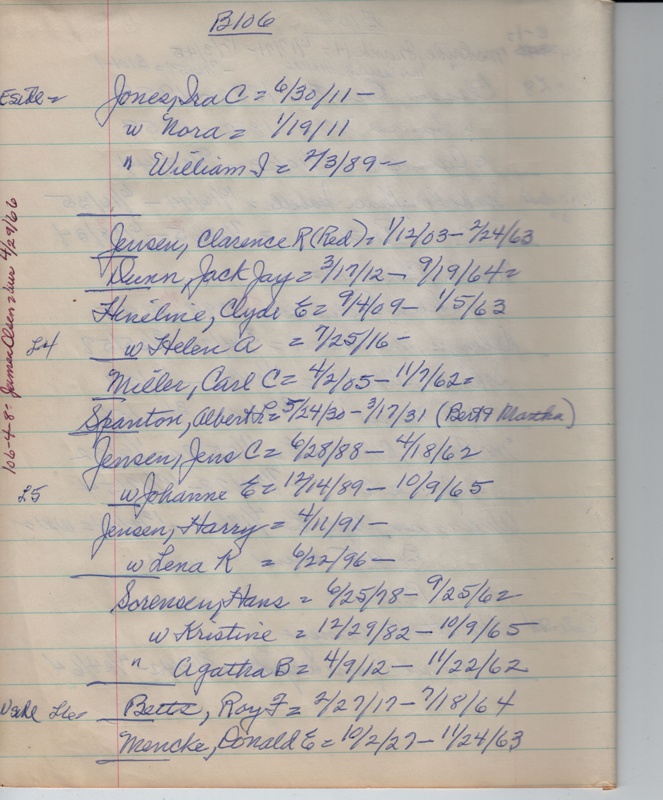 B106
Eside = Jones, Ira C = 6/30/11 —
w Nora = 1/19/11
" William I = 2/3/89 —
Jensen, Clarence R (Red) = 1/12/03 — 2/24/63
Dunn, Jack Jay = 3/17/12 — 9/19/64 =
Hineline, Clyde E = 9/4/09 — 1/5/63
L4 w Helen A = 7/25/16 —
Miller, Carl C = 4/2/05 — 11/7/62 =
Spanton, Albert L = 5/24/30 — 3/17/31 (Bert & Martha)
Jensen, Jens C = 6/28/88 — 4/18/62
L5 w Johanne E = 12/14/89 — 10/9/65
Jensen, Harry = 4/11/91 —
w Lena K = 6/22/96 —
Sorensen, Hans = 6/25/78 — 9/25/62
w Kristine = 12/29/82 — 10/9/65
" Agatha B = 4/9/12 — 11/22/62
Wside L6 = Betts, Roy F = 2/27/17 — 7/18/64
Mencke, Donald E = 10/2/27 — 11/24/63
106-4-8 = James Olsen 4/29/66